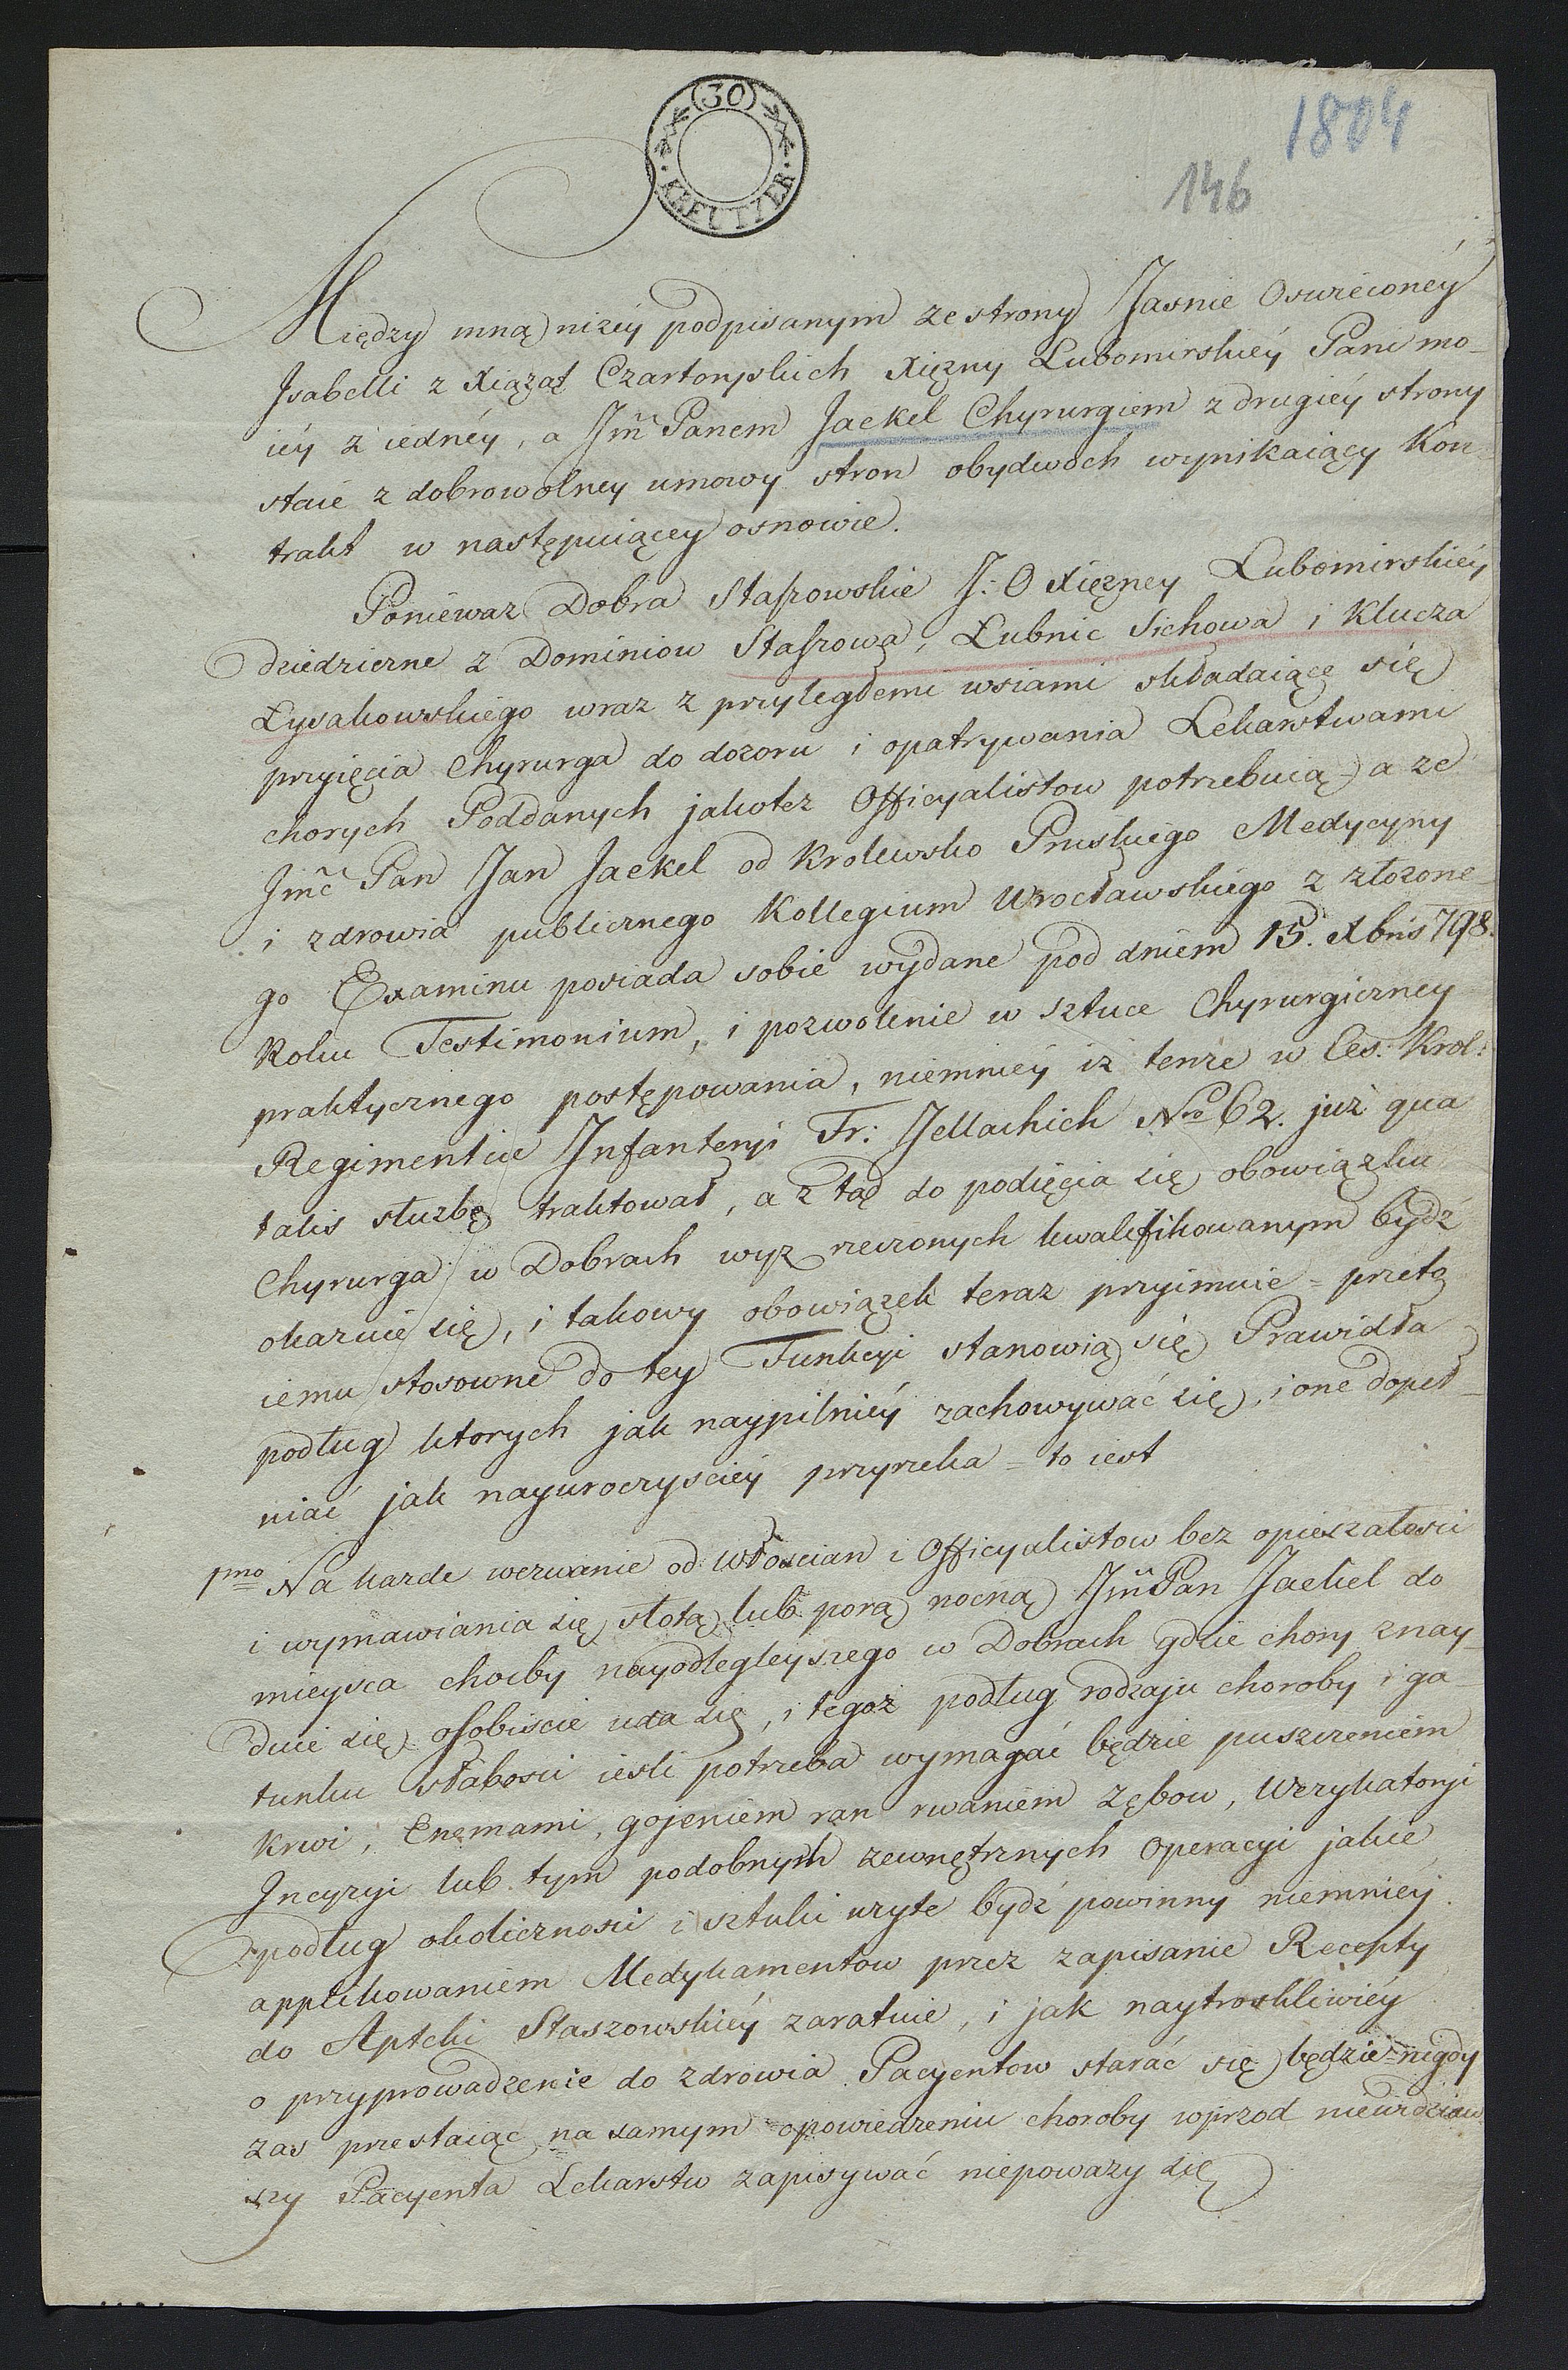 (30)
KREUTZER
1804
146
Między mną niżey podpisanym ze strony Jasnie Oswieconey
Isabelli z Xiążąt Czartoryskich Xiężny Lubomirskiéy Pani mo-
iéy z iednéy, a Jmć Panem Jaekel Chyrurgiem z drugiéy strony
staie z dobrowolney umowy stron obydwóch wynikaiący Kon-
trakt w następuiącey osnowie.
Ponieważ Dobra Staszowskie J: O Xiężney Lubomirskiéy
dziedziczne z Dominiow Staszowa, Łubnic Sichowa i Klucza
Łysakowskiego wraz z przyległemi wsiami składaiące się
przyięcia Chyrurga do dozoru i opatrywania Lekarstwami
chorych Poddanych jakotez Officyalistow potrzebuią a ze
Jmć Pan Jan Jaekel od Krolewsko Pruskiego Medycyny
i zdrowia publicznego Kollegium Wrocławskiego z złożone-
go Examinu posiada sobie wydane pod dniem 15. Xbris 798.
Roku Testimonium, i pozwolenie w sztuce Chyrurgiczney
praktycznego postępowania, niemniéy iż tenże w Ces: Krol:
Regimentie Infanteryi Fr: Jellachich No 62. już qua
talis służbę traktował, a z tąd do podięcia się obowiązku
Chyrurga w Dobrach wyż rzeczonych kwalifikowanym bydź
okazuie się, i takowy obowiązek teraz przyimuie = przeto
iemu stosowne do tey Funkcyi stanowią się Prawidła
podług ktorych jak naypilniéy zachowywać się, i one dopeł-
niać jak nayuroczyściéy przyrzeka = to iest
pmo Na każde wezwanie od włościan i Officyalistow bez opieszałości
i wymawiania się słotą lub porą nocną Jmć Pan Jaekel do
mieysca choćby nayodlegleyszego w Dobrach gdzie chory znay-
duie się osobiście uda się, i tegoż podług rodzaju choroby i ga-
tunku słabości ieśli potrzeba wymagać będzie puszczeniem
krwi, Enemami, gojeniem ran rwaniem zębow, Wezykatoryi
Incyzyi lub tym podobnych zewnętrznych Operacyi jakie
podług okoliczności i sztuki użyte bydź powinny niemniéy
applikowaniem Medykamentow przez zapisanie Recepty
do Apteki Staszowskiéy zaratuie, i jak naytroskliwiéy
o przyprowadzenie do zdrowia Pacyentow starać się będzie = nigdy
zas przestaiąc na samym opowiedzeniu choroby wprzod niewidziaw
szy Pacyenta Lekarstw zapisywać niepoważy się